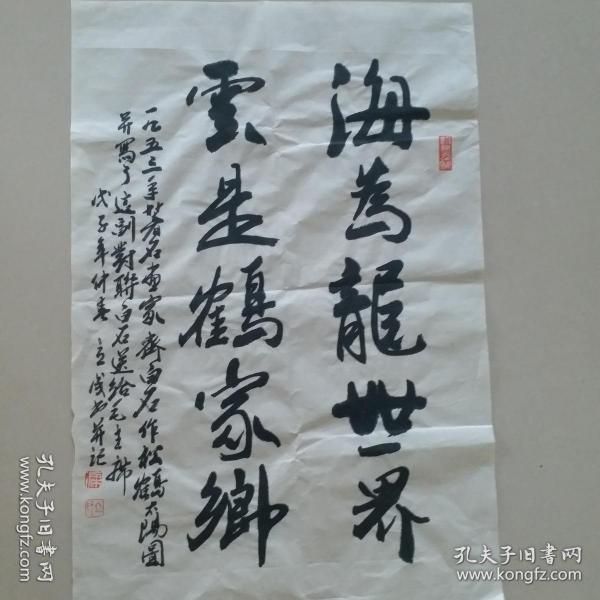 海為龍世界
雲是鶴家鄉
一九五三年著名画家齊白石作松鶴太陽圖
并寫了這副對聯白石送给毛主席
戊子年仲春 立成书并记
孔夫子旧书网
www.kongfz.com
孔夫子旧书网
www.kongfz.com